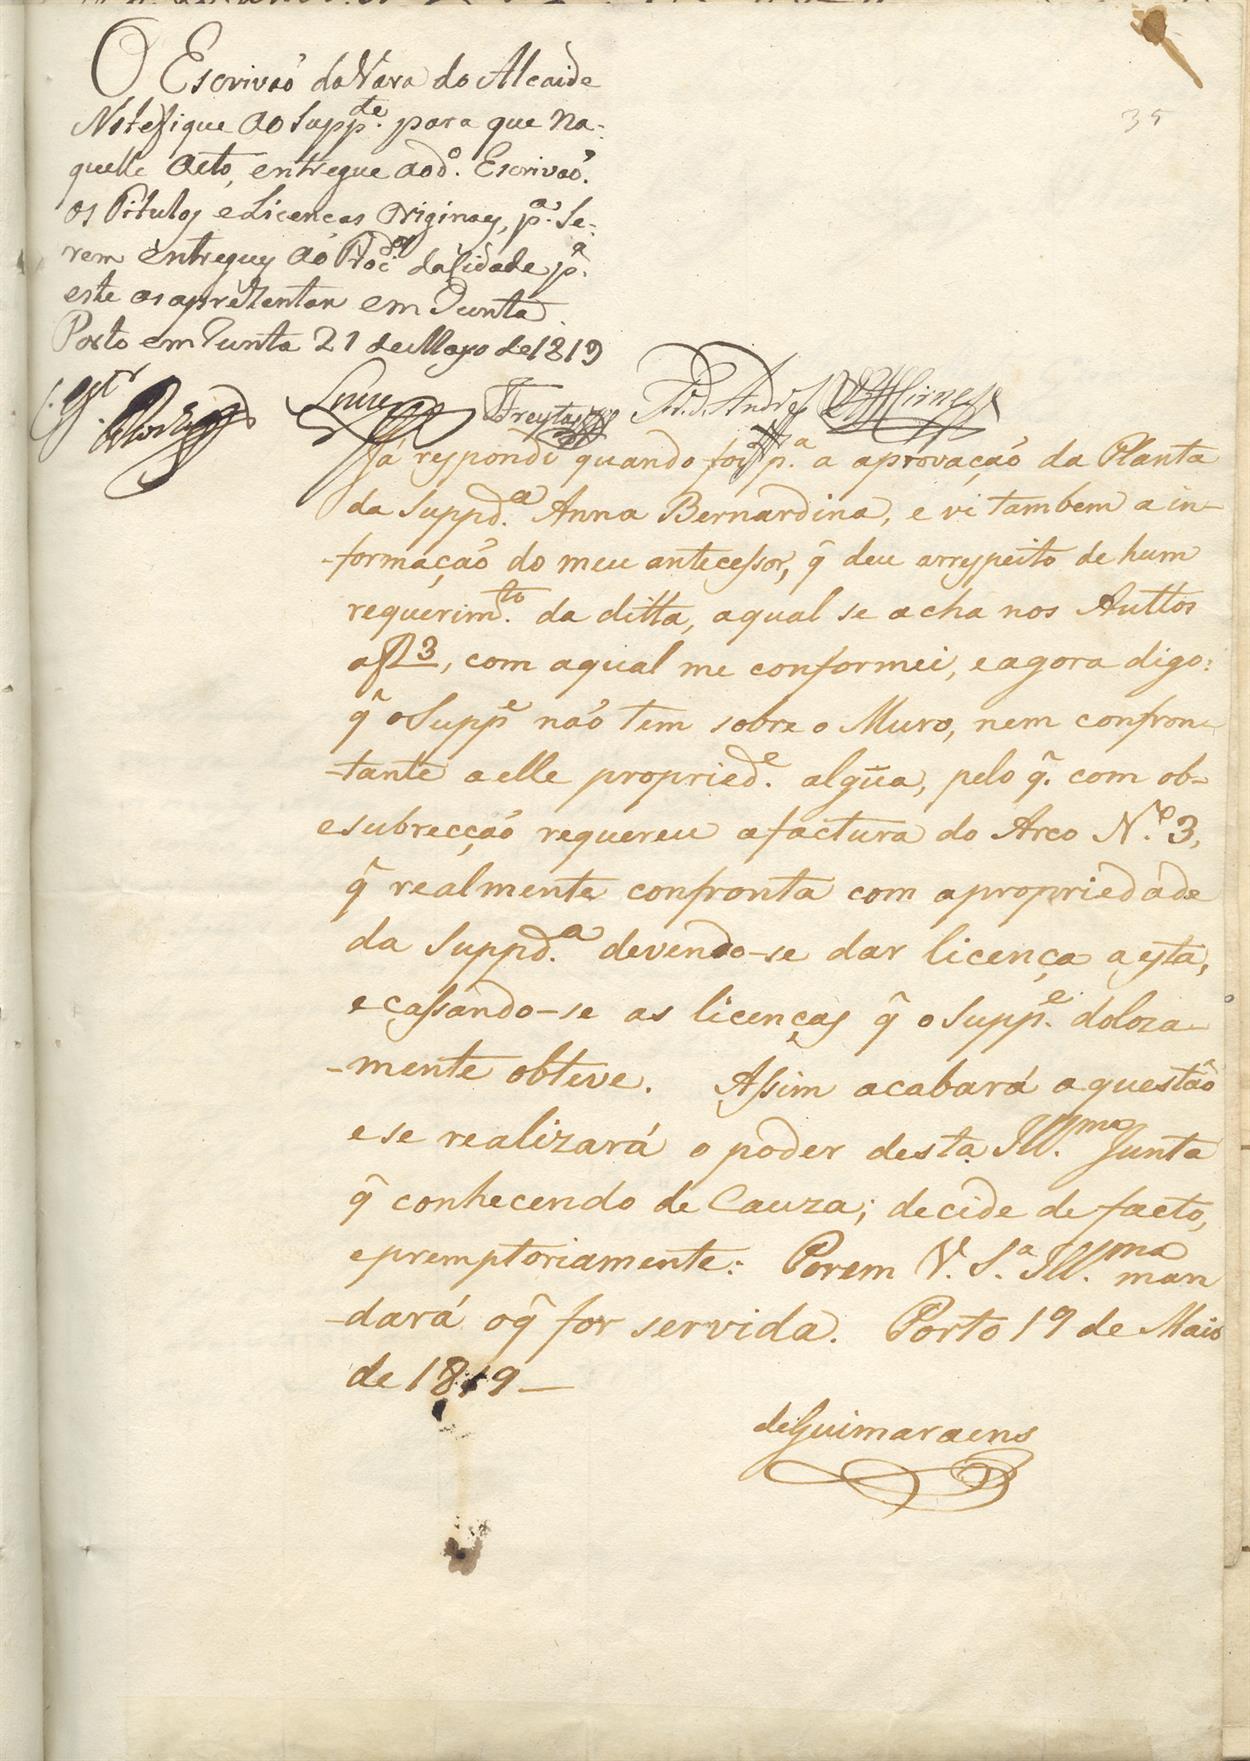 35
O Escrivaõ da Vara do Alcaide
Notefique ao Supp.de para que Na-
quelle Acto, entregue ao d.o Escrivaõ
os Titulos e Licencas Originaes, p.a Se-
rem entregues ao Proc.dor da Cidade p.a
este os aprezentar em Junta
Porto em Junta 21 de Mayo de 1819
Freytas
Já respondi quando foi p.a a aprovaçaõ da Planta
da Suppd.a Anna Bernardina, e vi tambem a in-
-formaçaõ do meu antecessor, q̃ deu arrespeito de hum
requerim.to da ditta, aqual se acha nos Auttos
a f 3, com aqual me conformei, e agora digo:
q̃ o Supp.e naõ tem sobre o Muro, nem confron-
-tante a elle propried.e algũa, pelo q̃. com ob-
esubrecçaõ requereu a factura do Arco N.o 3,
q̃ realmente confronta com apropriedade
da Suppd.a devendo-se dar licença a esta,
e cassando-se as licenças q̃ o Supp.e doloza-
-mente obteve. Assim acabará a questaõ
e se realizará o poder desta Ill.ma Junta
q̃ conhecendo de Cauza; decide de facto,
epremptoriamente: Porem V. S.a Ill.ma man
-dará oq̃ for servida. Porto 19 de Maio
de 1819—
de Guimaraens